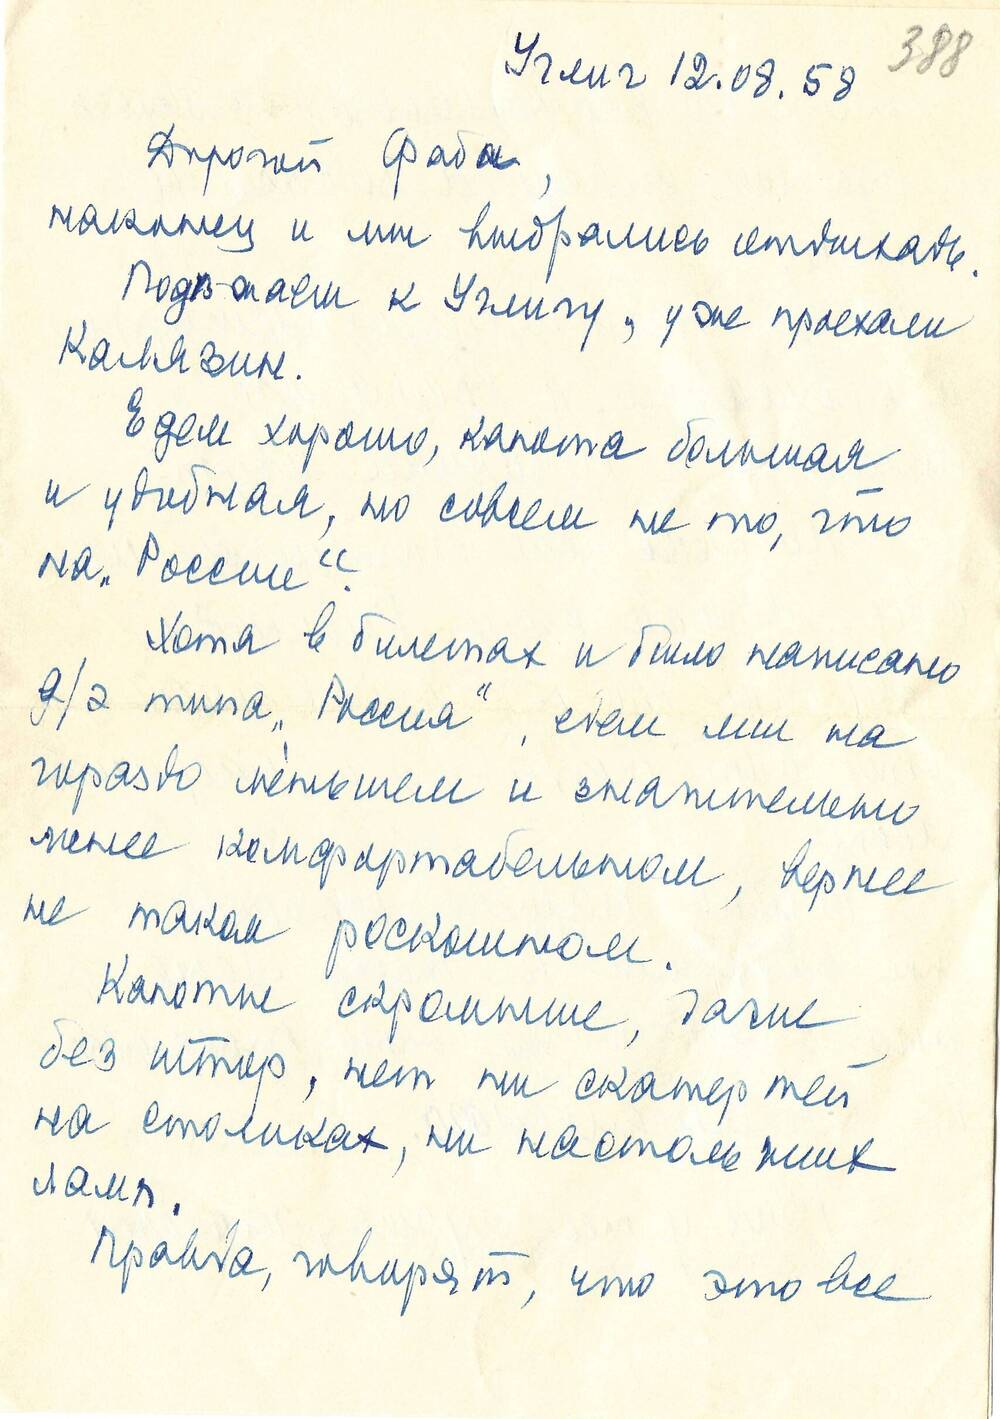 388
Углич 12.08.58
Дорогой Фаби,
наконец и мы выбрались отдыхать.
Подъезжаем к Угличу, уже проехали
Калязин.
Едем хорошо, каюта большая
и удобная, но совсем не то, что
на „России“.
Хотя в билетах и было написано
д/э типа „Россия“, едем мы на
гораздо меньшем и значительно
менее комфортабельном, вернее
не таком роскошном.
Каюты скромные, даже
без штор, нет ни скатертей
на столиках, ни настольных
ламп.
Правда, говорят, что это все